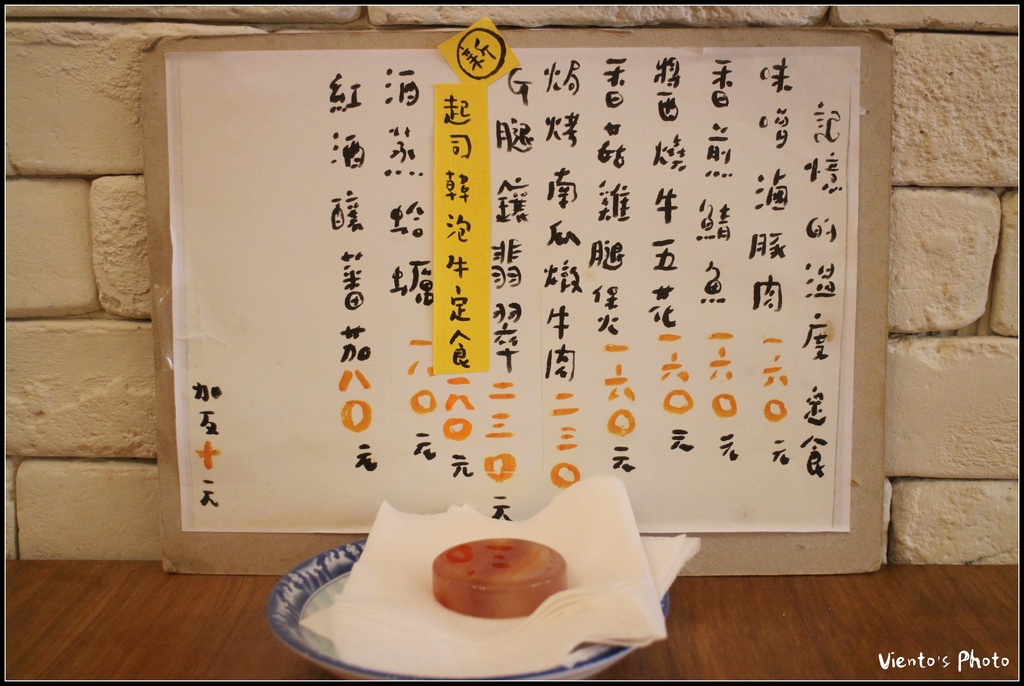 記憶的溫度定食
味噌滷豚肉一六〇元
香煎鯖魚一六〇元
醬燒牛五花一六〇元
香菇雞腿煲火一六〇元
焗烤南瓜燉牛肉二三〇
G腿鑲翡翠二三〇元
新
起司韓泡牛定食
一八〇元
酒蒸蛤蠣一八〇元
紅酒釀蕃茄八〇元
加瓦十元
Viento's Photo